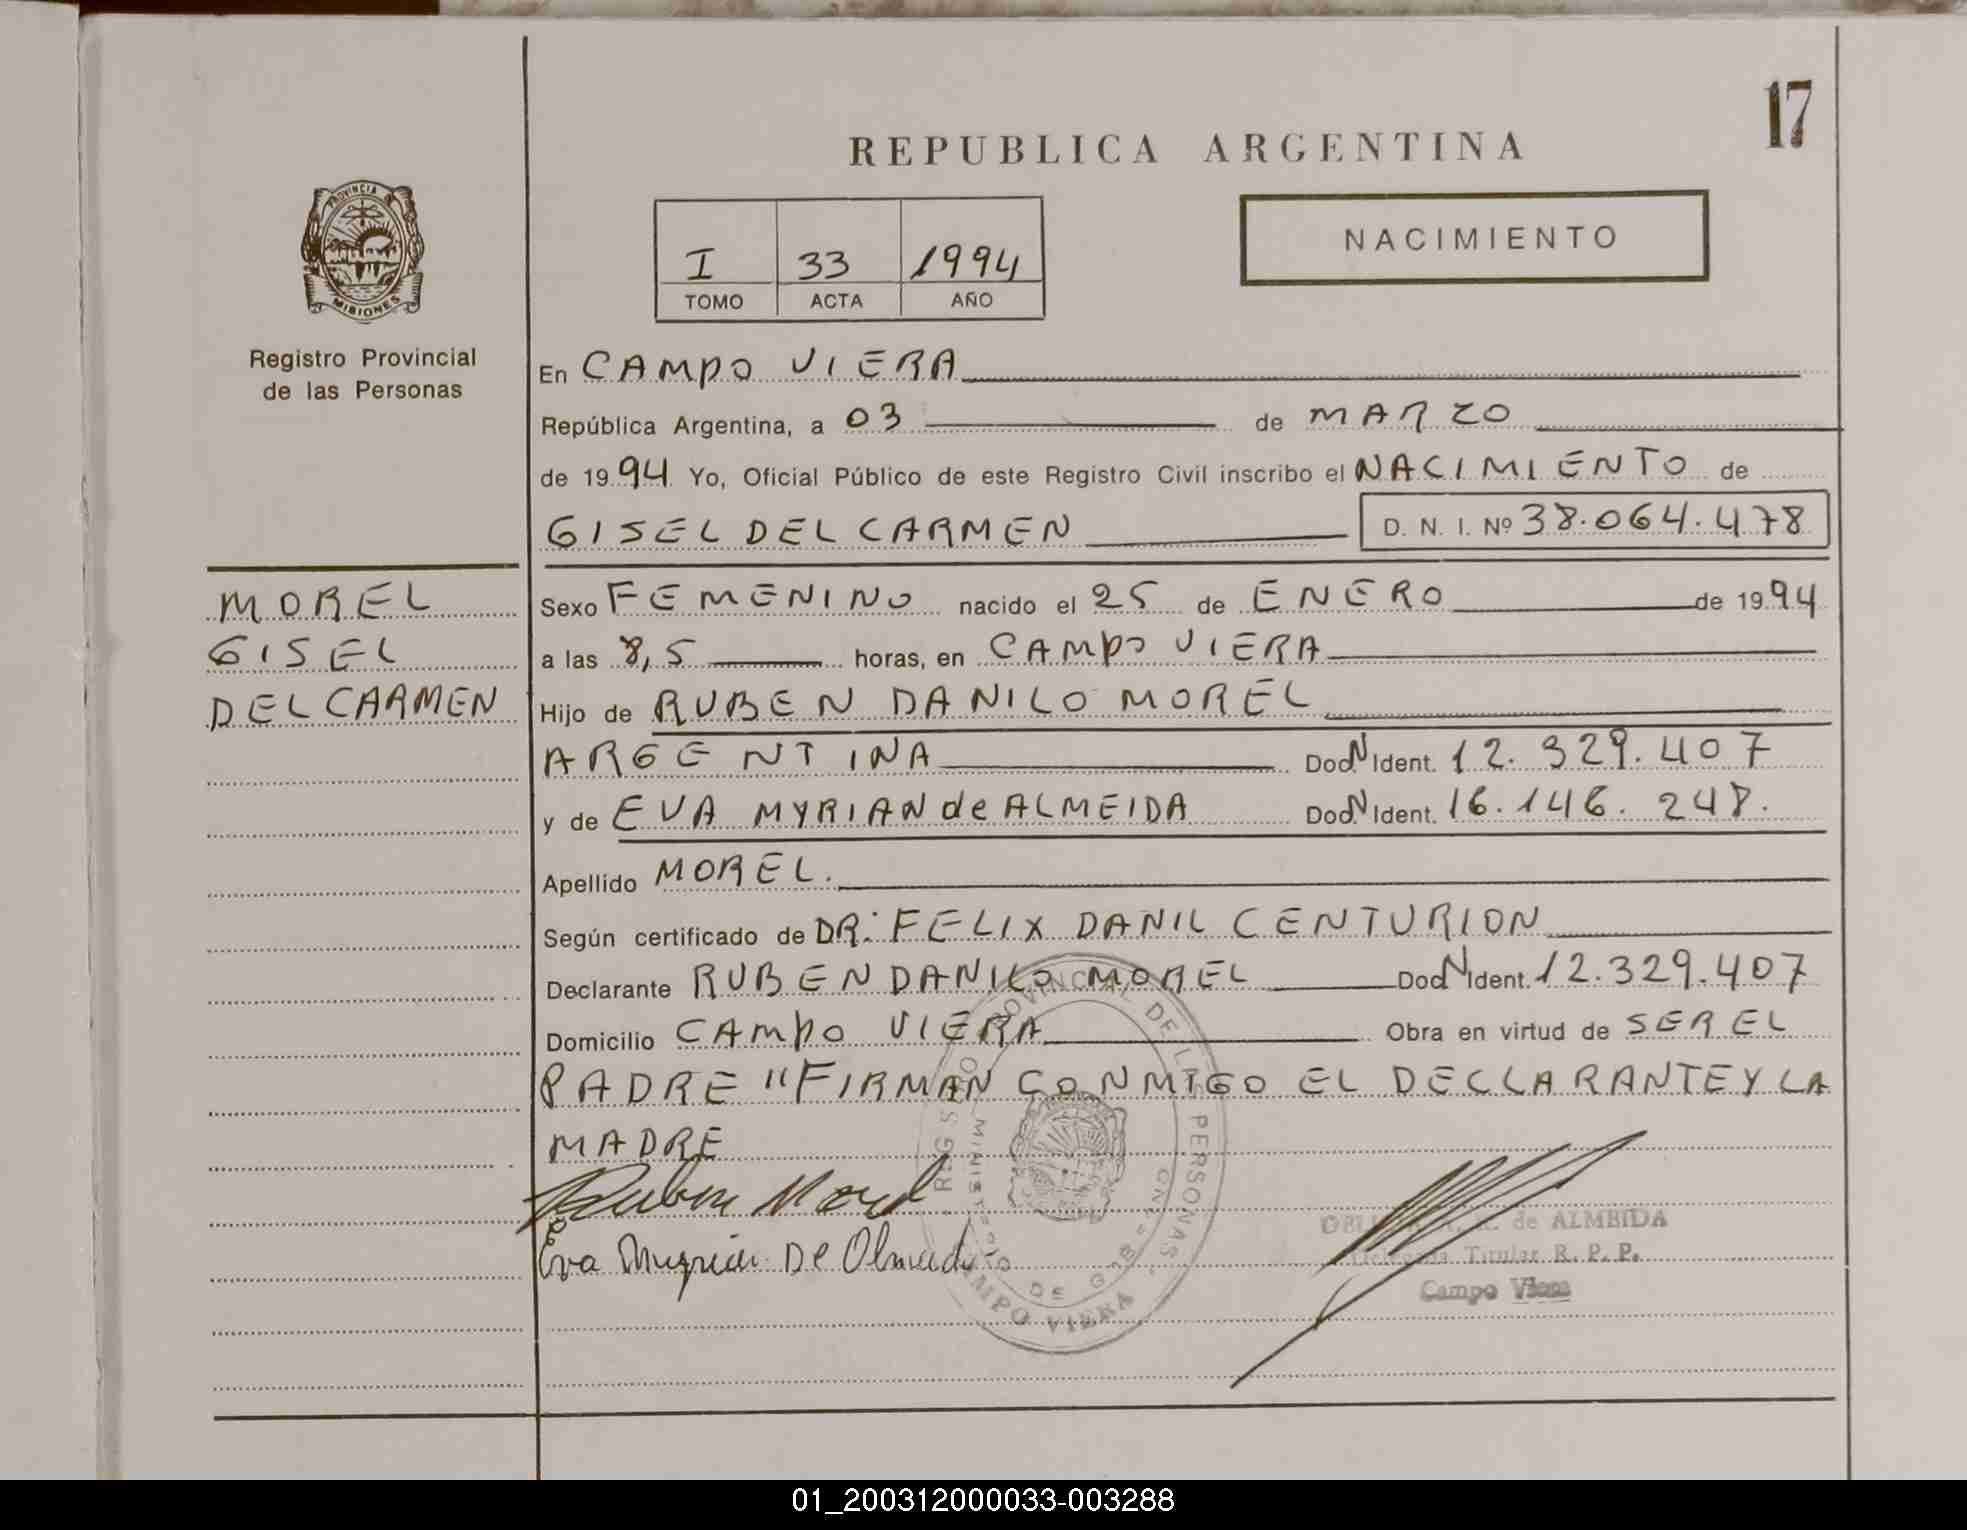 17
REPUBLICA ARGENTINA
PROVINCIA DE
MISIONES
NACIMIENTO
I 33 1994
TOMO ACTA AÑO
Registro Provincial
de las Personas
MOREL
GISEL
DEL CARMEN
En CAMPO VIERA
República Argentina, a 03 de MARZO
de 1994 Yo, Oficial Público de este Registro Civil inscribo el NACIMIENTO de
GISEL DEL CARMEN D. N. I. Nº 38.064.478
Sexo FEMENINO nacido el 25 de ENERO de 1994
a las 8,5 horas, en CAMPO VIERA
Hijo de RUBEN DANILO MOREL
ARGENTINA Doc.N Ident. 12.329.407
y de EVA MYRIAN de ALMEIDA Doc.N Ident. 16.146.248.
Apellido MOREL.
Según certificado de DR: FELIX DANIL CENTURION
Declarante RUBEN DANILO MOREL Doc.N Ident. 12.329.407
Domicilio CAMPO VIERA Obra en virtud de SER EL
PADRE "FIRMAN CONMIGO EL DECLARANTE Y LA
MADRE
Ruben Morel
Eva Myrian De Olmeida
PROVINCIAL DE LAS PERSONAS
MINISTERIO DE GOBIERNO
CAMPO VIERA
de ALMEIDA
Delegada Titular R. P. P.
Campo Viera
01_200312000033-003288